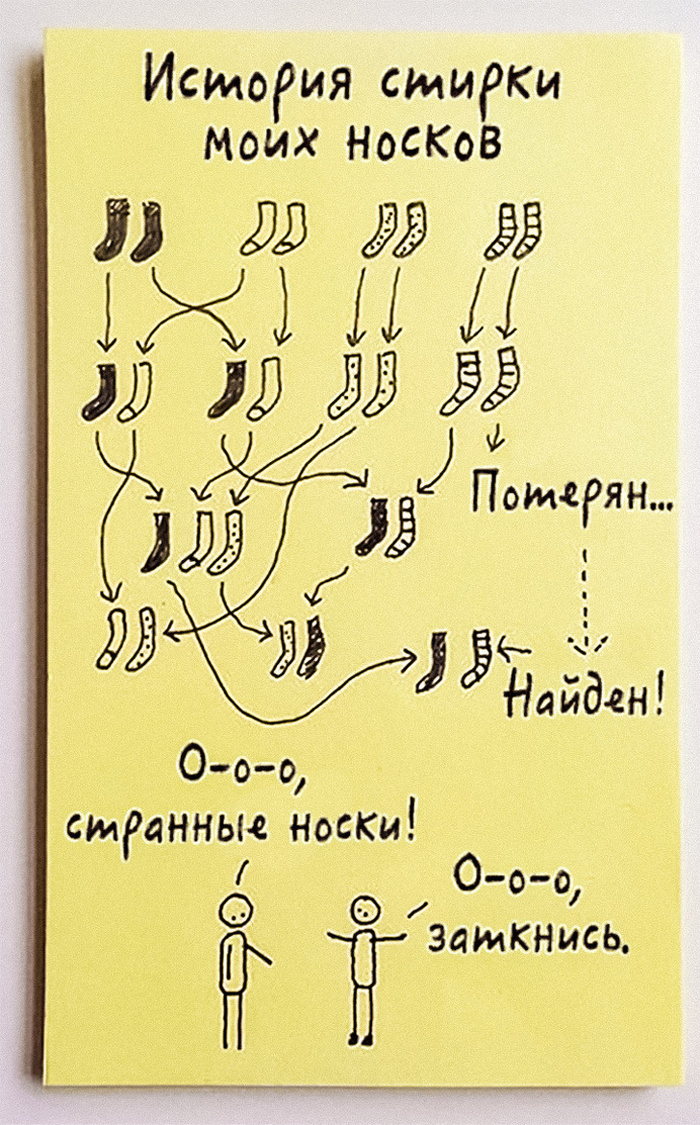 История стирки
моих носков
Потерян...
Найден!
О-о-о,
странные носки!
О-о-о,
заткнись.